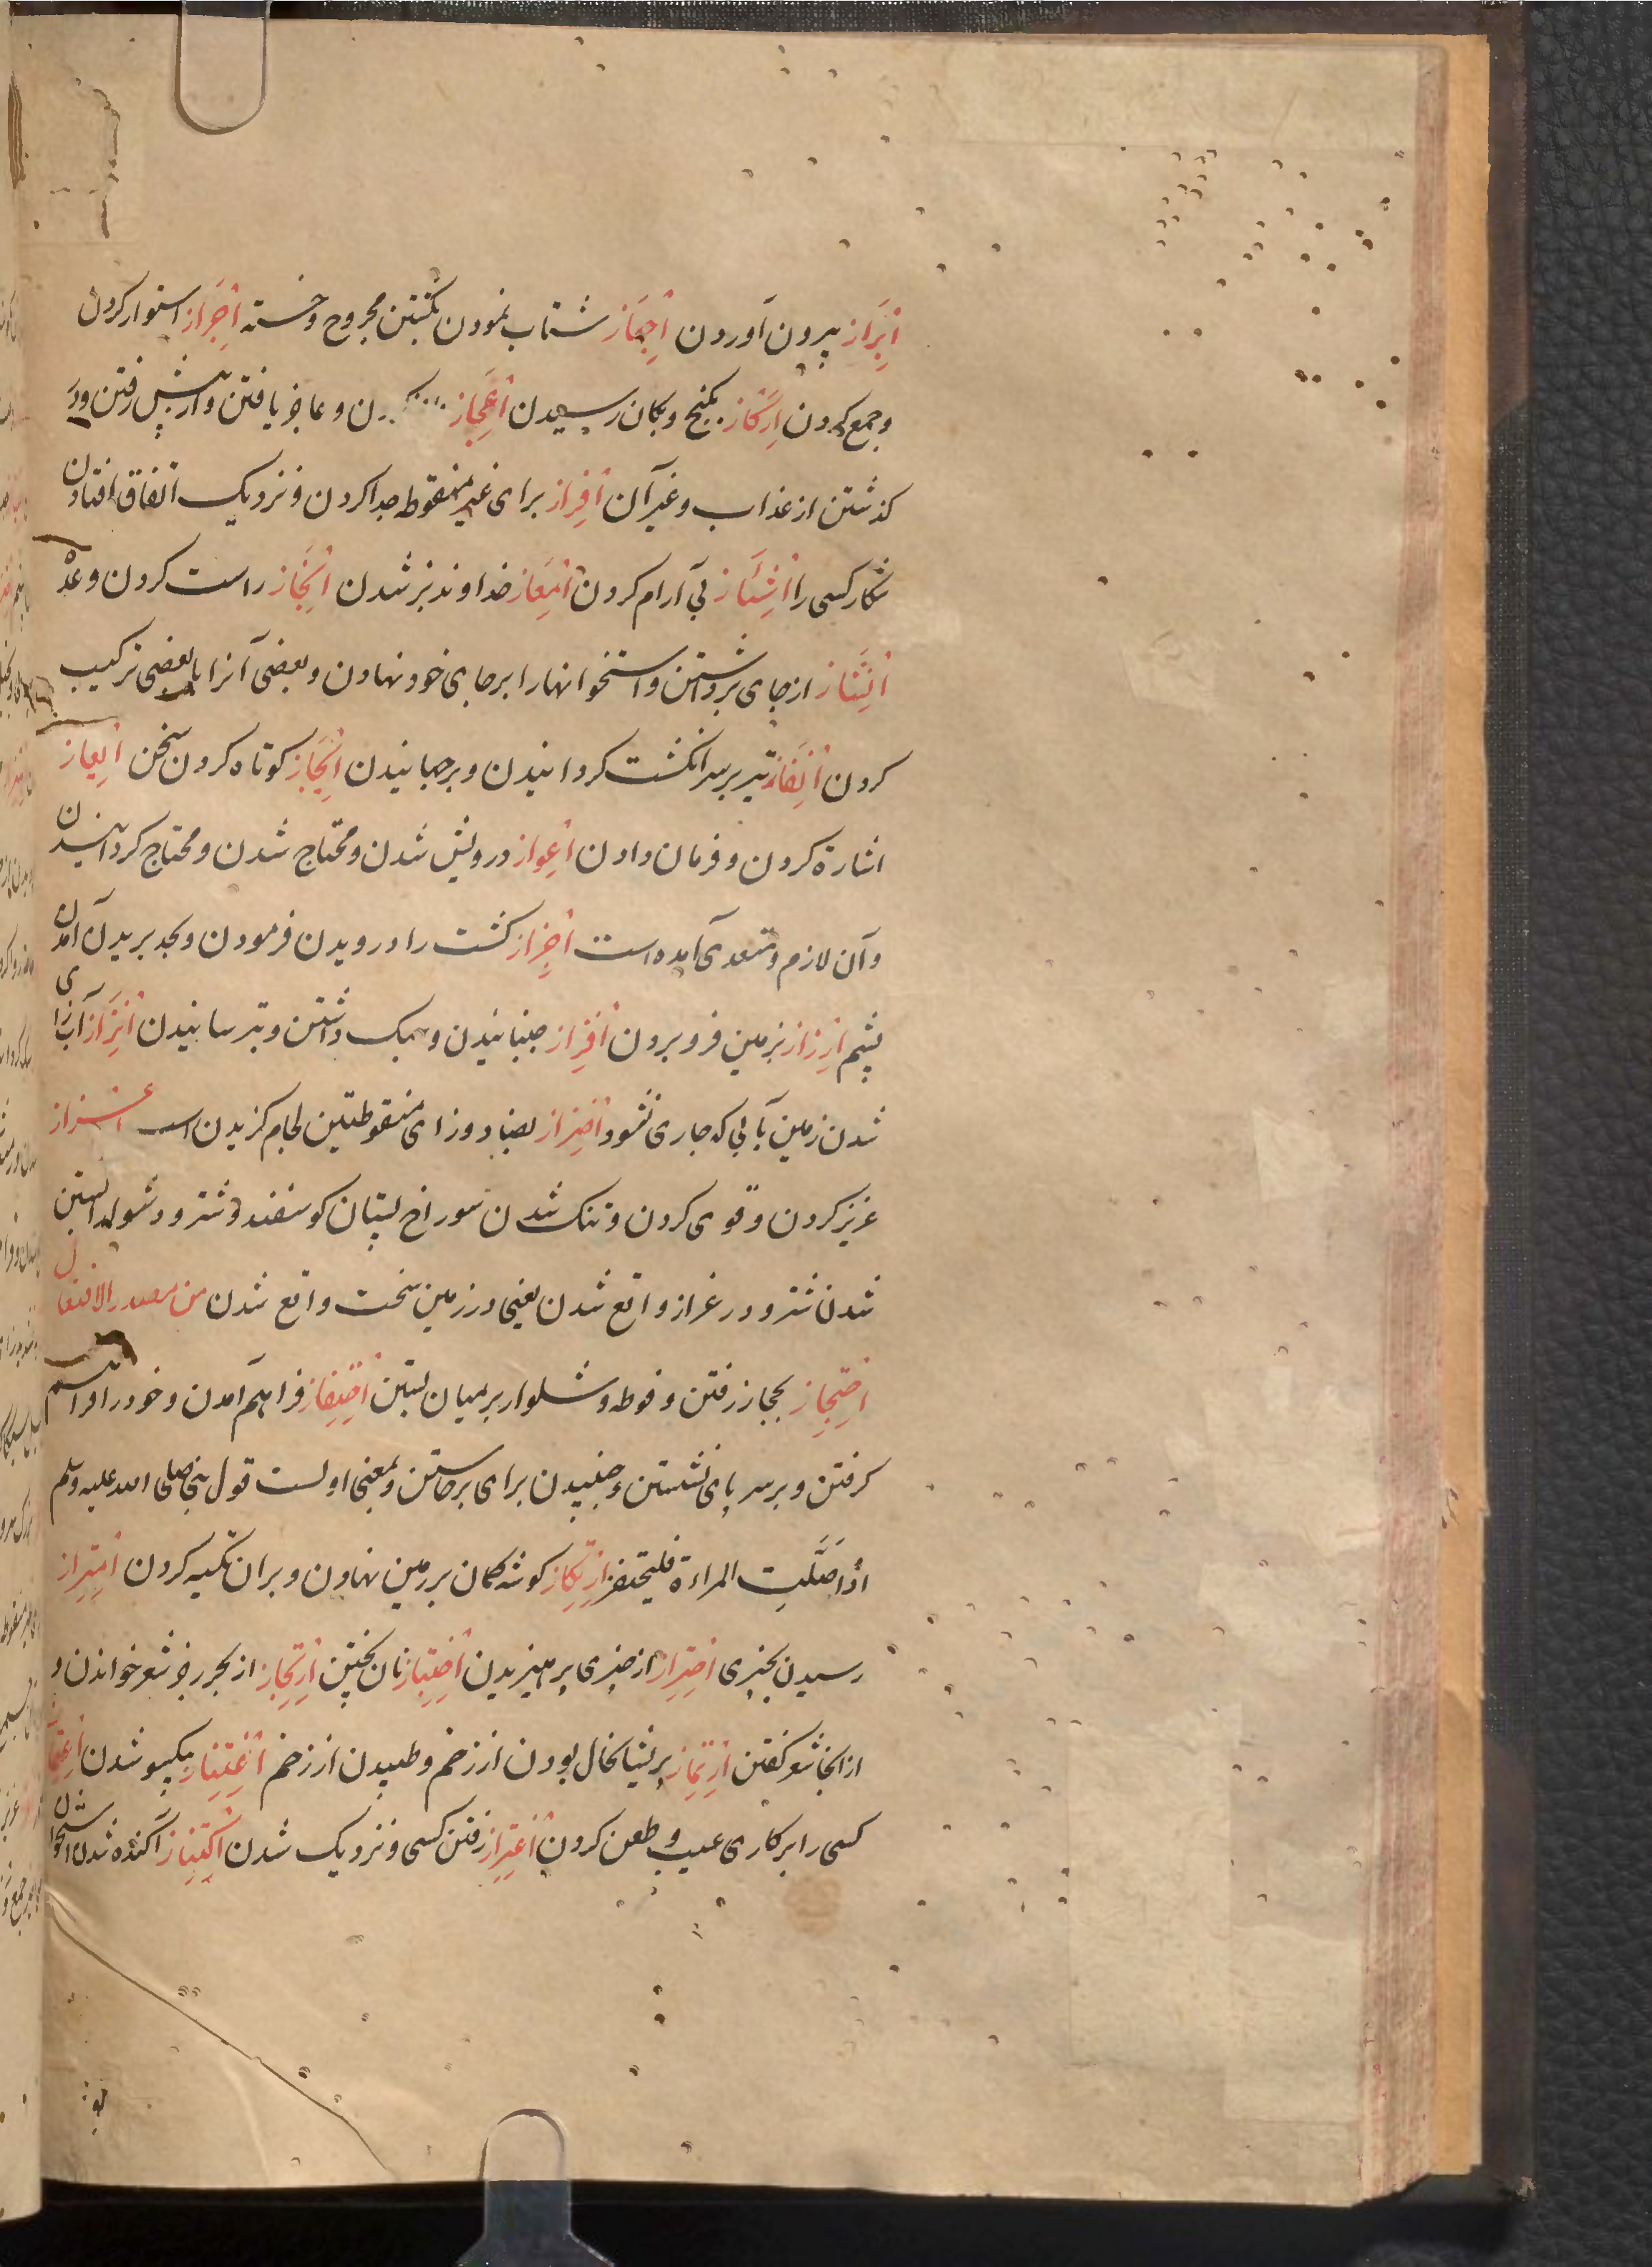 اِبْرَاز بیرون آوردن اِجهَاز شتاب نمودن بکشتن مجروح و خسته اِحْرَاز استوار کردن
و جمع کردن اِرْکَاز بکنج و بکان رسیدن اِعْجَاز ن و عاجز یافتن و از پیش رفتن و در
کذشتن از عذاب و غیر آن اِفْراز برای غیر منقوطه جدا کردن و نزدیک اتفاق افتادن
شکار کسی را اِشْئَاز بی آرام کردن اِمْعَاز خداوند بز شدن اِنْجَاز راست کردن وعده
اِنْشَاز از جای برداشتن و استخوانها را بر جای خود نهادن و بعضی آنرا با بعضی ترکیب
کردن اِنْفَاز تیر بر سر انکشت کردانیدن و برجهانیدن اِیْجَاز کوتاه کردن سخن اِیْعاز
اشارة کردن و فرمان دادن اِعْواز درویش شدن و محتاج شدن و محتاج کردانیدن
و آن لازم و متعدی آمده است اِجْزاز کشت را درویدن فرمودن و بحد بریدن آمدن
پشم اِرْزاز بزمین فرو بردن اِفْزاز جنبانیدن و سبک داشتن و بترسانیدن اِنْزَاز آب زای
شدن زمین آبی که جاری نشود اِضْزاز بضاد و زای منقوطتین لجام کزیدن اسب اعزاز
عزیز کردن و قوی کردن و تنک شدن سوراخ پستان کوسفند و شتر و دشوار آبستن
شدن شتر و در عزاز واقع شدن یعنی در زمین سخت واقع شدن من مصدر الافتعال
اِحْتِجاز بحجاز رفتن و فوطه و شلوار بر میان بستن اِحْتِفاز فراهم آمدن و خود را فراهم
کرفتن و بر سر پای نشستن و جنبیدن برای برخاستن و بمعنی اولست قول نبی صلی الله علیه و سلم
اذا صَلَّیتِ المراءة فلیحتفز اِرْتِکاز کوشه کمان بر زمین نهادن و بران تکیه کردن اِمْتِراز
رسیدن بچیزی اِحْتِراز از چیزی پرهیزیدن اِخْتِباز نان پختن اِرْتِجاز از بحر رجز شعر خواندن و
از انجا شعر کفتن اِرْتِماز پریشان حال بودن از زخم و طپیدن از زخم اِعْتِناز یکسو شدن اِغْتِماز
کسی را بر کاری عیب و طعن کردن اِغْتِراز رفتن کسی و نزدیک شدن اِکْتِناز آکنده شدن استخوان